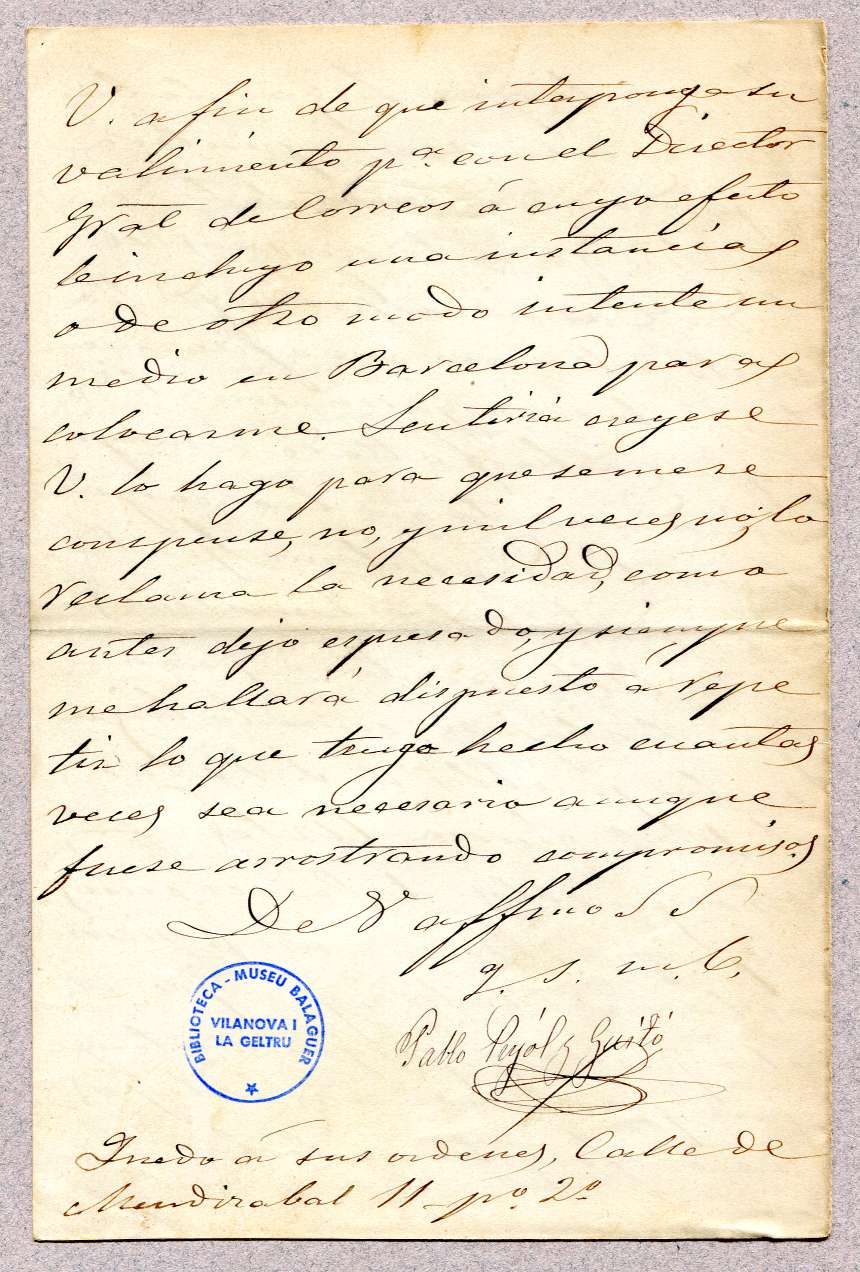 V. a fin de que interponga su
valimiento pª. con el Director
Gral de Correos á cuyo efecto
le incluyo una instancia
o de otro modo intente un
medio en Barcelona para
colocarme. Sentiria creyese
V. lo hago para que se me re
compense, no, y mil veces no; lo
reclama la necesidad, como
antes dejo espresado, y siempre
me hallará dispuesto á repe
tir lo que tengo hecho cuantas
veces sea necesario aunque
fuese arrostrando compromisos
De V affmo S S
q. s. m. b.
Pablo Pujól y Guitó
BIBLIOTECA - MUSEU BALAGUER
VILANOVA I
LA GELTRU
Quedo á sus ordenes, Calle de
Mendizabal 11 - pº. 2º